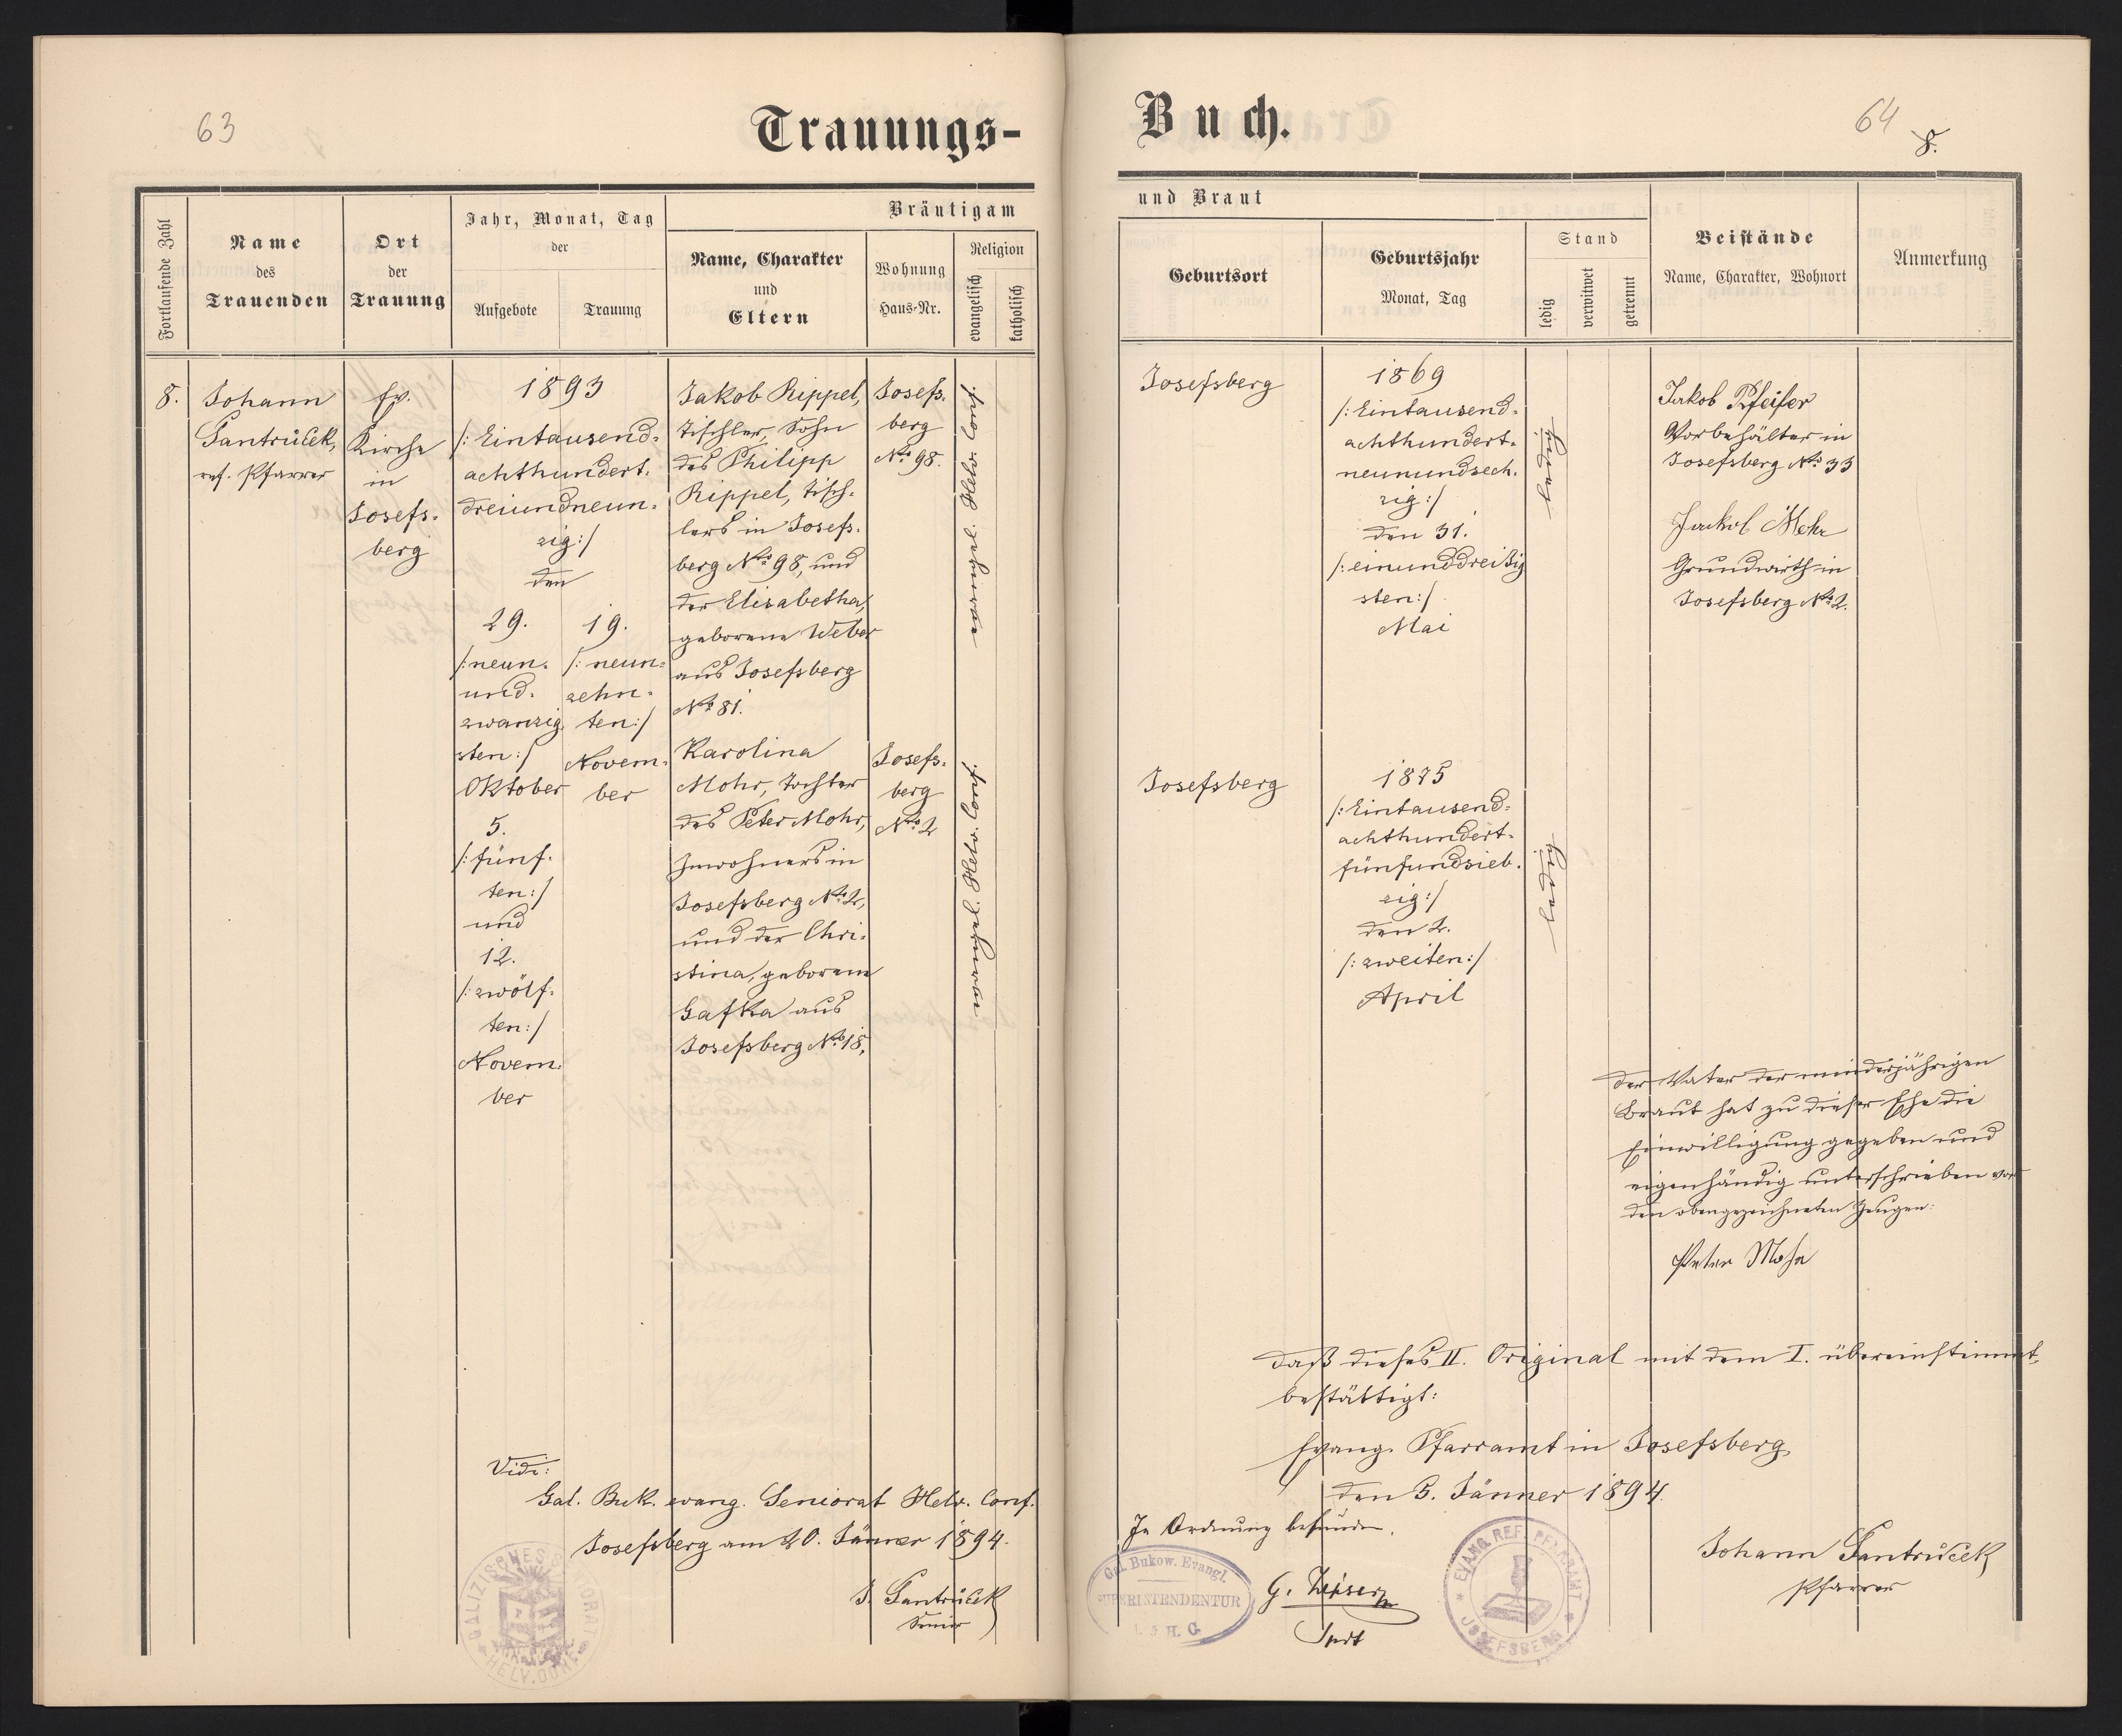 63
Trauungs-
Fortlaufende Zahl
Name
des
Trauenden
Ort
der
Trauung
Jahr, Monat, Tag
der
Aufgebote
Trauung
Bräutigam
Name, Charakter
und
Eltern
Wohnung
Haus-Nr.
Religion
evangelisch
katholisch
8.
Johann
ref. Pfarrer
Ev.
Kirche
in
Josefs-
berg
1893
/: Eintausend-
achthundert-
dreiundneun-
zig :/
den
29.
/: neun-
und-
zwanzig-
sten :/
Oktober
5.
/: fünf-
ten :/
und
12.
/: zwölf-
ten :/
Novem-
ber
19.
/: neun-
zehn-
ten :/
Novem-
ber
Jakob Rippel,
Tischler, Sohn
des Philipp
Rippel, Tisch-
lers in Josefs-
berg No. 98, und
der Elisabetha,
geborene Weber
aus Josefsberg
No. 81.
Josefs-
berg
No. 98.
evangel. Helv. Conf.
Karolina
Mohr, Tochter
des Peter Mohr,
Inwohners in
Josefsberg No. 2,
und der Chri-
stina, geborene
Gafka aus
Josefsberg No. 18.
Josefs-
berg
No. 2
evangel. Helv. Conf.
Vidi:
Gal. Buk. evang. Seniorat Helv. Conf.
Josefsberg am 20. Jänner 1894.
Senior
GALIZISCHES SENIORAT
HELV. CONF.
Buch.
64
8.
und Braut
Geburtsort
Geburtsjahr
Monat, Tag
Stand
ledig
verwitwet
getrennt
Beistände
Name, Charakter, Wohnort
Anmerkung
Josefsberg
1869
/: Eintausend-
achthundert-
neunundsech-
zig :/
den 31.
/: einunddreißig
sten :/
Mai
ledig
Jakob Pfeifer
Vorbehälter in
Josefsberg No. 33
Jackob Mohr
Grundwirth in
Josefsberg No. 2.
Josefsberg
1875
/: Eintausend-
achthundert-
fünfundsieb-
zig :/
den 2.
/: zweiten :/
April
ledig
Der Vater der minderjährigen
Braut hat zu dieser Ehe die
Einwilligung gegeben und
eigenhändig unterschrieben vor
den obengezeichneten Zeugen:
Peter Mohr
Daß dieses II. Original mit dem I. übereinstimmt,
bestättigt:
Evang. Pfarramt in Josefsberg,
den 5. Jänner 1894.
In Ordnung befunden.
Gal. Bukow. Evangl.
SUPERINTENDENTUR
H. G
G.
Spdt
EVANG. REF. PFARRAMT
JOSEFSBERG
Johann
Pfarrer